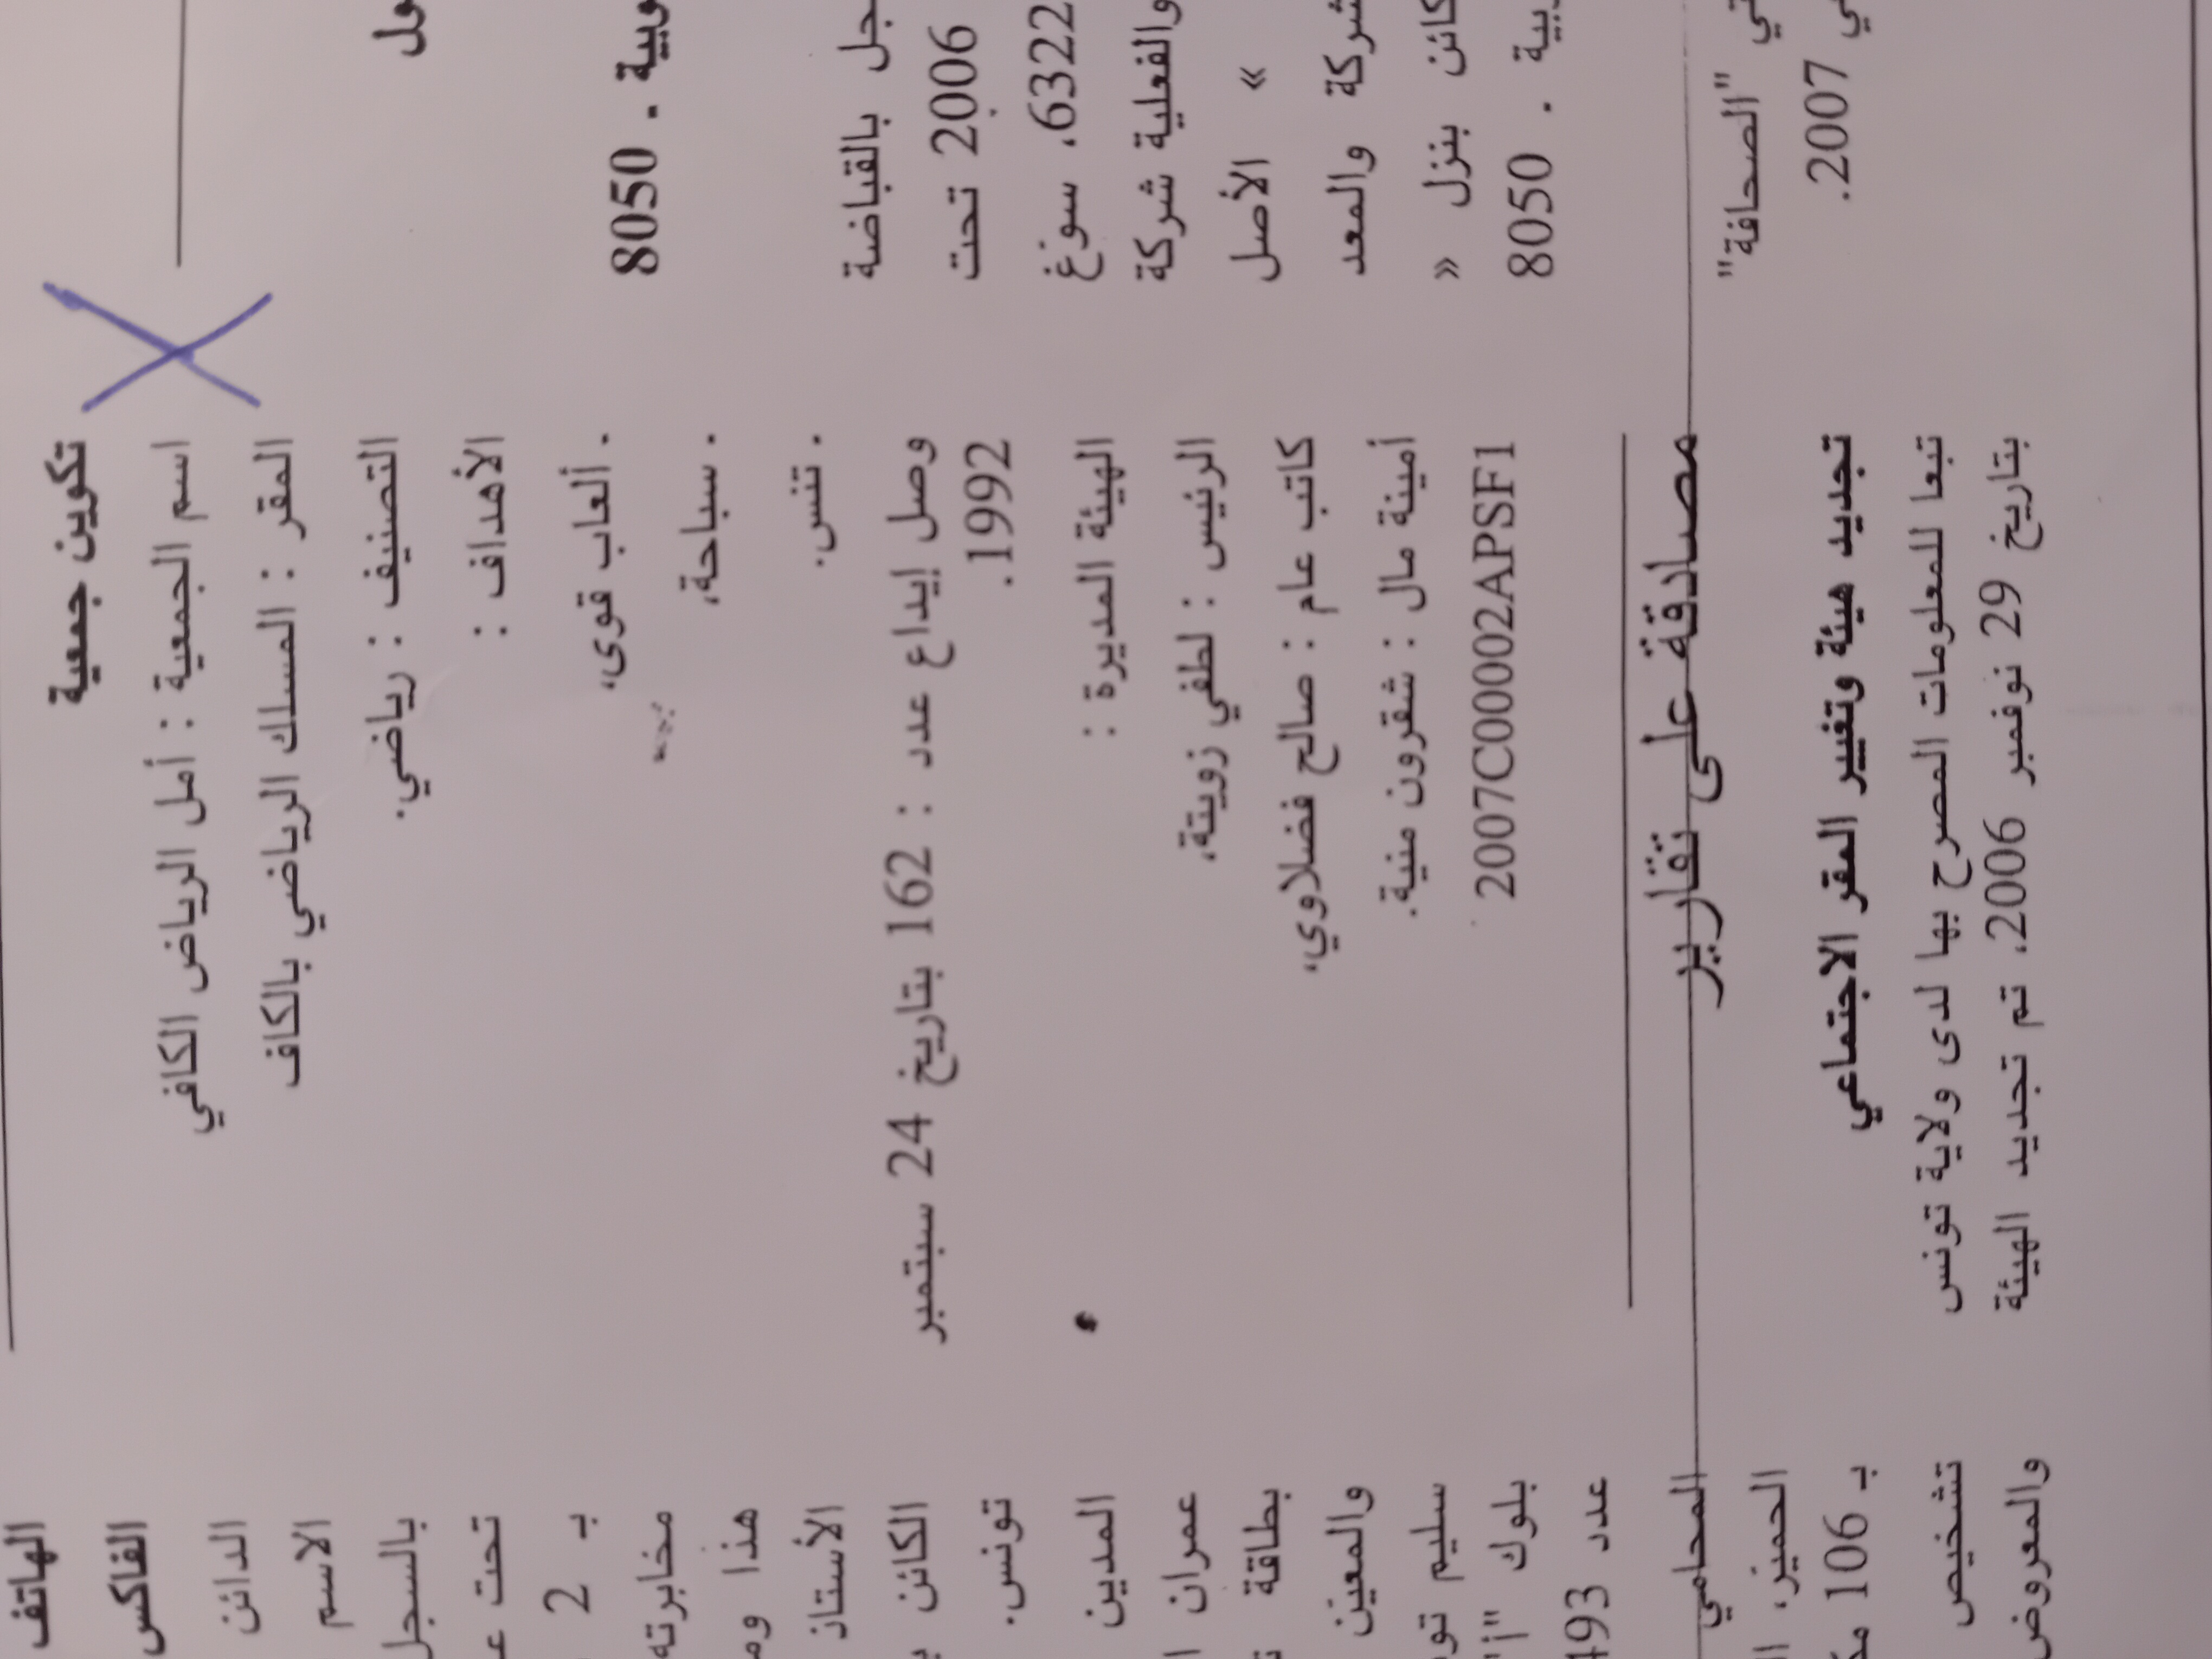 8050 .
بالقباضة
2006 تحت
6322، سوغ
والفعلية شركة
» الأصل
شركة والمعد
بنزل «
8050 .
"الصحافة"
2007.
تكوين جمعية
اسم الجمعية : أمل الرياض الكافي
المقر : المسلك الرياضي بالكاف
التصنيف : رياضي.
الأهداف :
. ألعاب قوى،
. سباحة،
. تنس.
وصل إيداع عدد : 162 بتاريخ 24 سبتمبر
1992.
الهيئة المديرة :
الرئيس : لطفي زويتة،
كاتب عام : صالح فضلاوي،
أمينة مال : شقرون منية.
2007C00002APSF1
مصادقة على تقارير
تجديد هيئة وتغيير المقر الاجتماعي
تبعا للمعلومات المصرح بها لدى ولاية تونس
بتاريخ 29 نوفمبر 2006، تم تجديد الهيئة
الهاتف
الفاكس
الدائن
الاسم
بالسجل
تحت
بـ 2
مخابرته
هذا
الأستاذ
الكائن
تونس.
المدين
عمران
بطاقة
والمعين
سليم
بلوك
عدد
المحامي
الحميز،
بـ 106
تشخيص
والمعروض